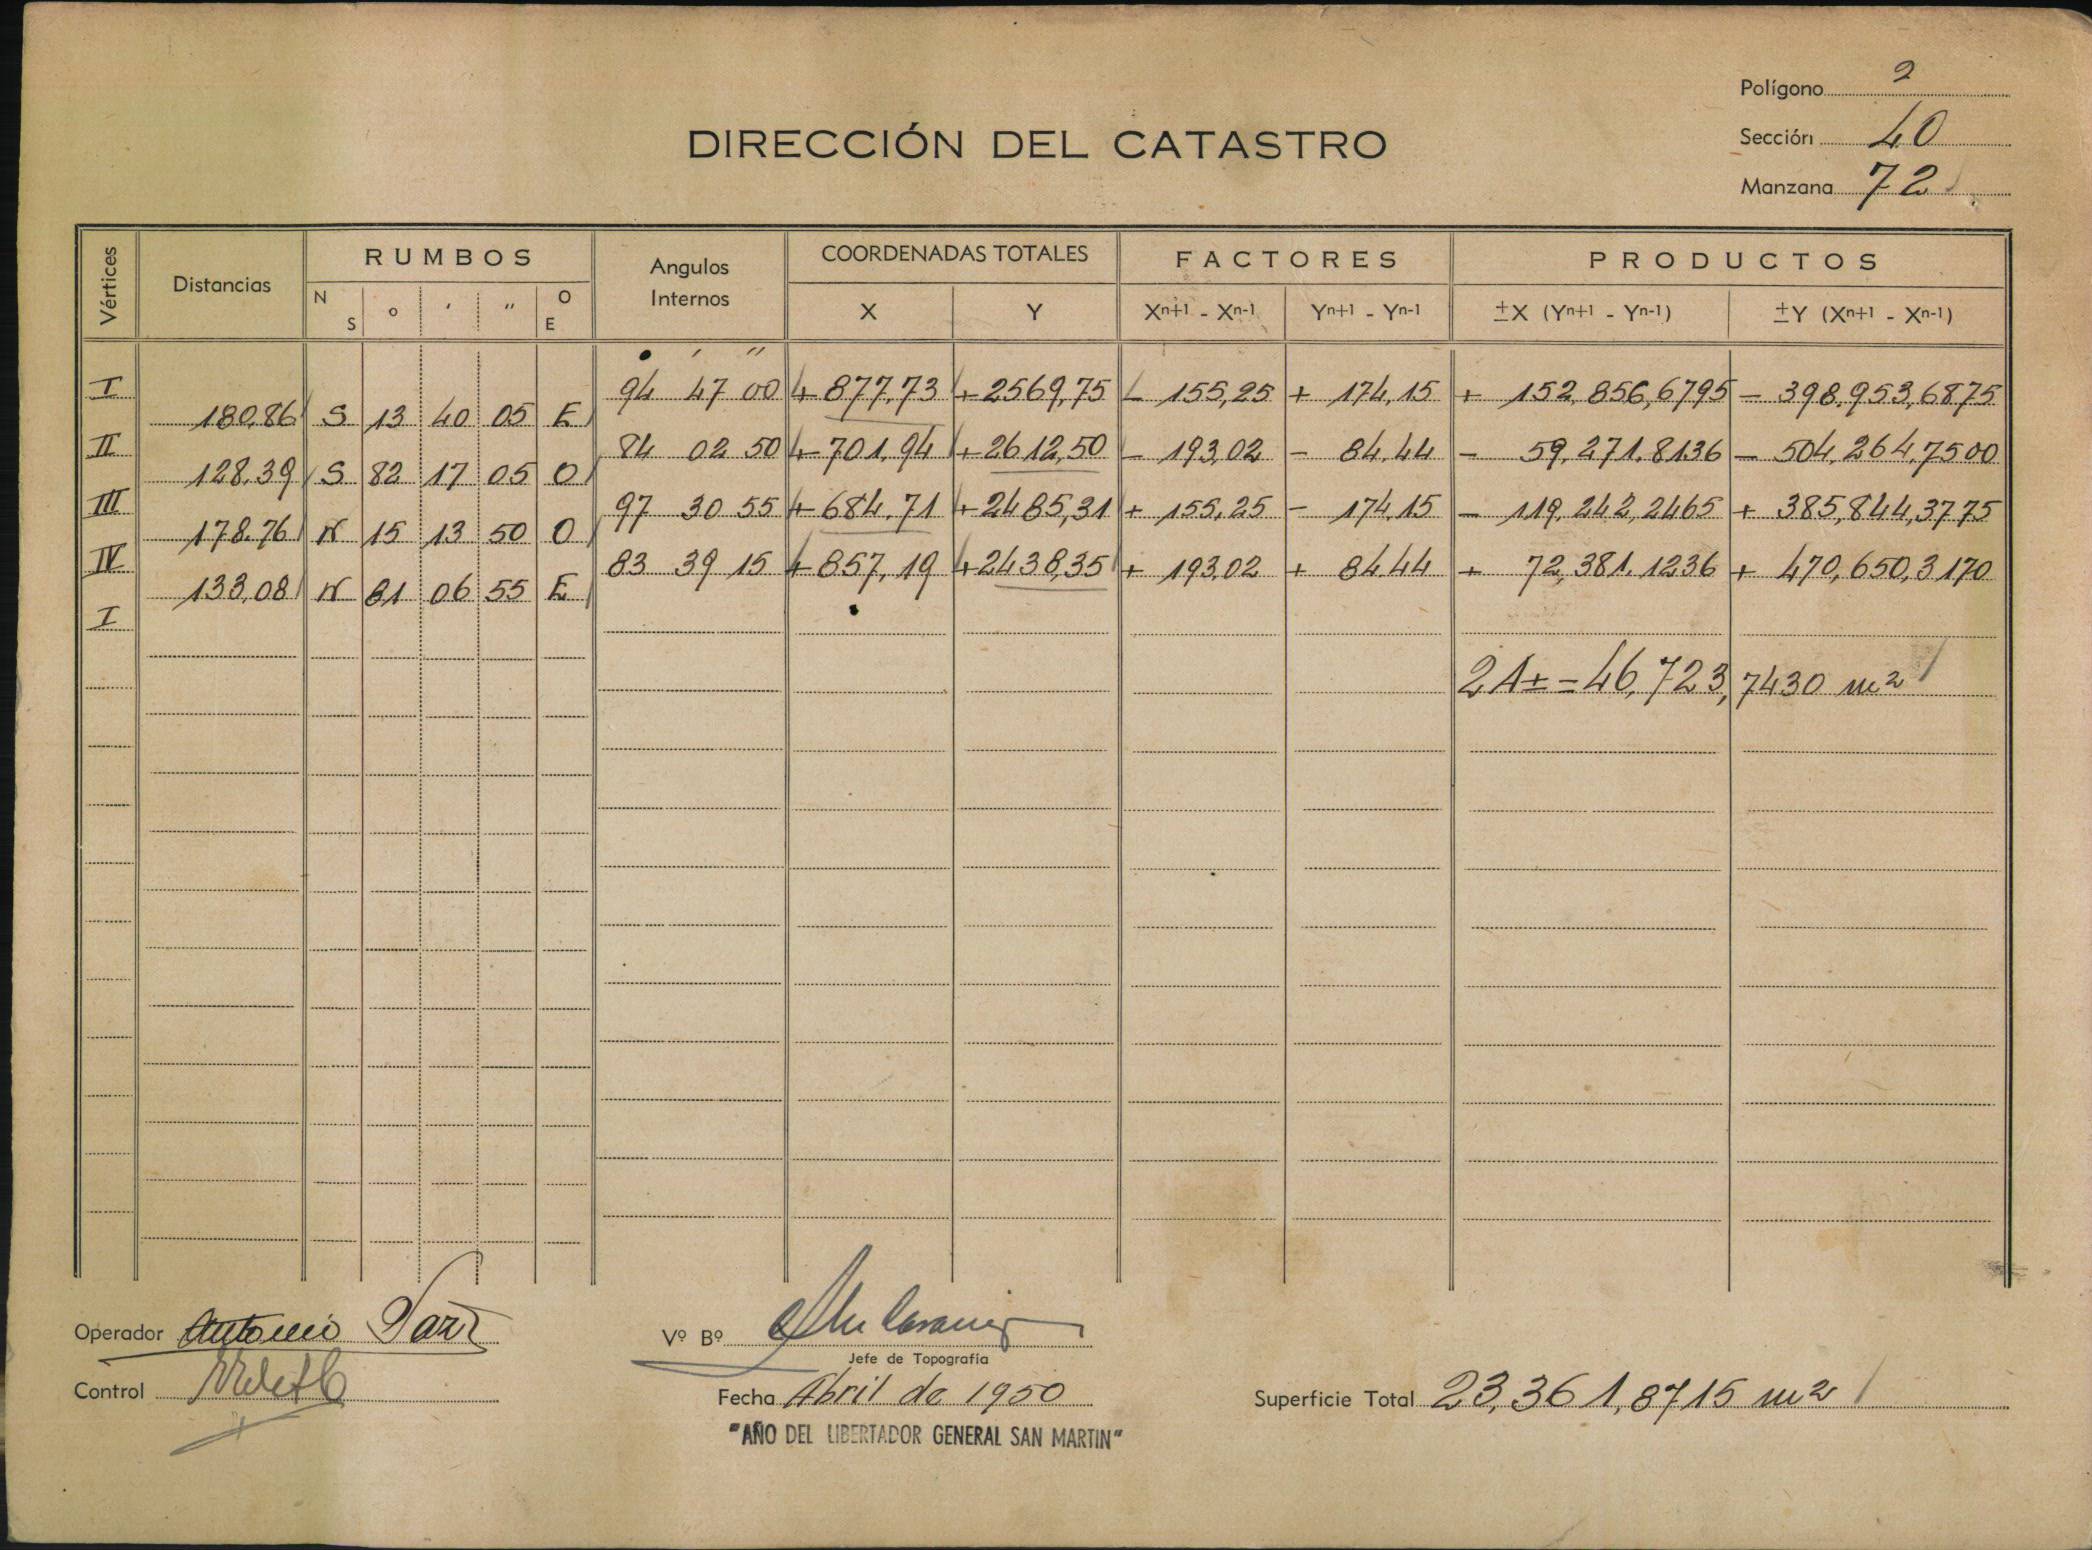 Polígono 2
DIRECCIÓN DEL CATASTRO
Sección 40
Manzana 72
Vértices Distancias RUMBOS Angulos Internos COORDENADAS TOTALES FACTORES PRODUCTOS
N S o ' " O E X Y Xn+1 - Xn-1 Yn+1 - Yn-1 ±X (Yn+1 - Yn-1) ±Y (Xn+1 - Xn-1)
° ' "
I 94 47 00 + 877,73 + 2569,75 - 155,25 + 174,15 + 152.856,6795 - 398.953,6875
180,86 S 13 40 05 E
II 84 02 50 + 701,94 + 2612,50 - 193,02 - 84,44 - 59.271,8136 - 504.264,7500
128,39 S 82 17 05 O
III 97 30 55 + 684,71 + 2485,31 + 155,25 - 174,15 - 119.242,2465 + 385.844,3775
178,76 N 15 13 50 O
IV 83 39 15 + 857,19 + 2438,35 + 193,02 + 84,44 + 72.381,1236 + 470.650,3170
133,08 N 81 06 55 E
I
2A± = 46.723,7430 m²
Operador Antonio
Vº Bº
Jefe de Topografía
Control
Fecha Abril de 1950
Superficie Total 23.361,8715 m²
"AÑO DEL LIBERTADOR GENERAL SAN MARTIN"